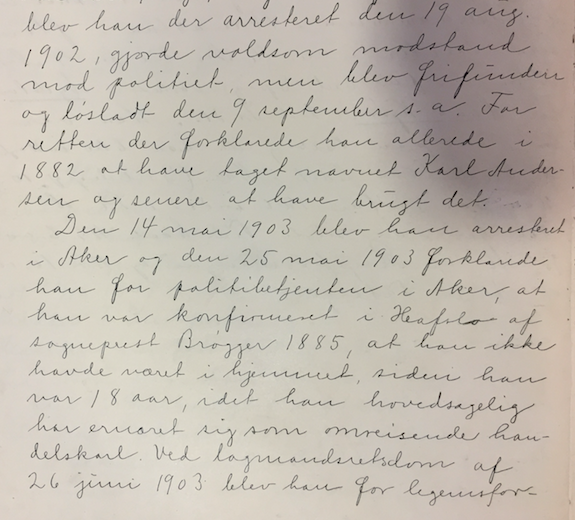 blev han der arresteret den 19 aug.
1902, gjorde voldsom modstand
mod politiet, men blev frifunden
og løsladt den 9 september s. a. For
retten der forklarede han allerede i
1882 at have taget navnet Karl Ander-
sen og senere at have brugt det.
Den 14 mai 1903 blev han arresteret
i Aker og den 25 mai 1903 forklarede
han for politibetjenten i Aker, at
han var konfirmeret i Hafslo af
sogneprest Brøgger 1885, at han ikke
havde været i hjemmet, siden han
var 18 aar, idet han hovedsagelig
har ernæret sig som omreisende han-
delskarl. Ved lagmandsretsdom af
26 juni 1903 blev han for legemsfor-